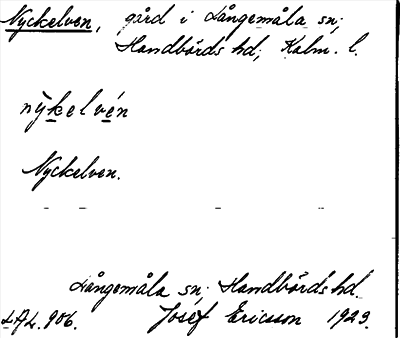 Nyckelven, gård i Långemåla sn;
Handbörds hd, Kalm. l.
nỳkelvén
Nyckelven.
Långemåla sn; Handbörds hd.
LAL. 906. Josef Ericsson 1923.